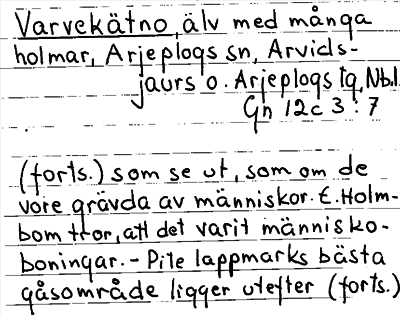 Varvekätno, älv med många
holmar, Arjeplogs sn, Arvids-
jaurs o. Arjeplogs tg, Nbl.
Gn 12c 3:7
(forts.) som se ut, som om de
vore grävda av människor. E. Holm-
bom tror, att det varit människo-
boningar. - Pite lappmarks bästa
gåsområde ligger utefter (forts.)